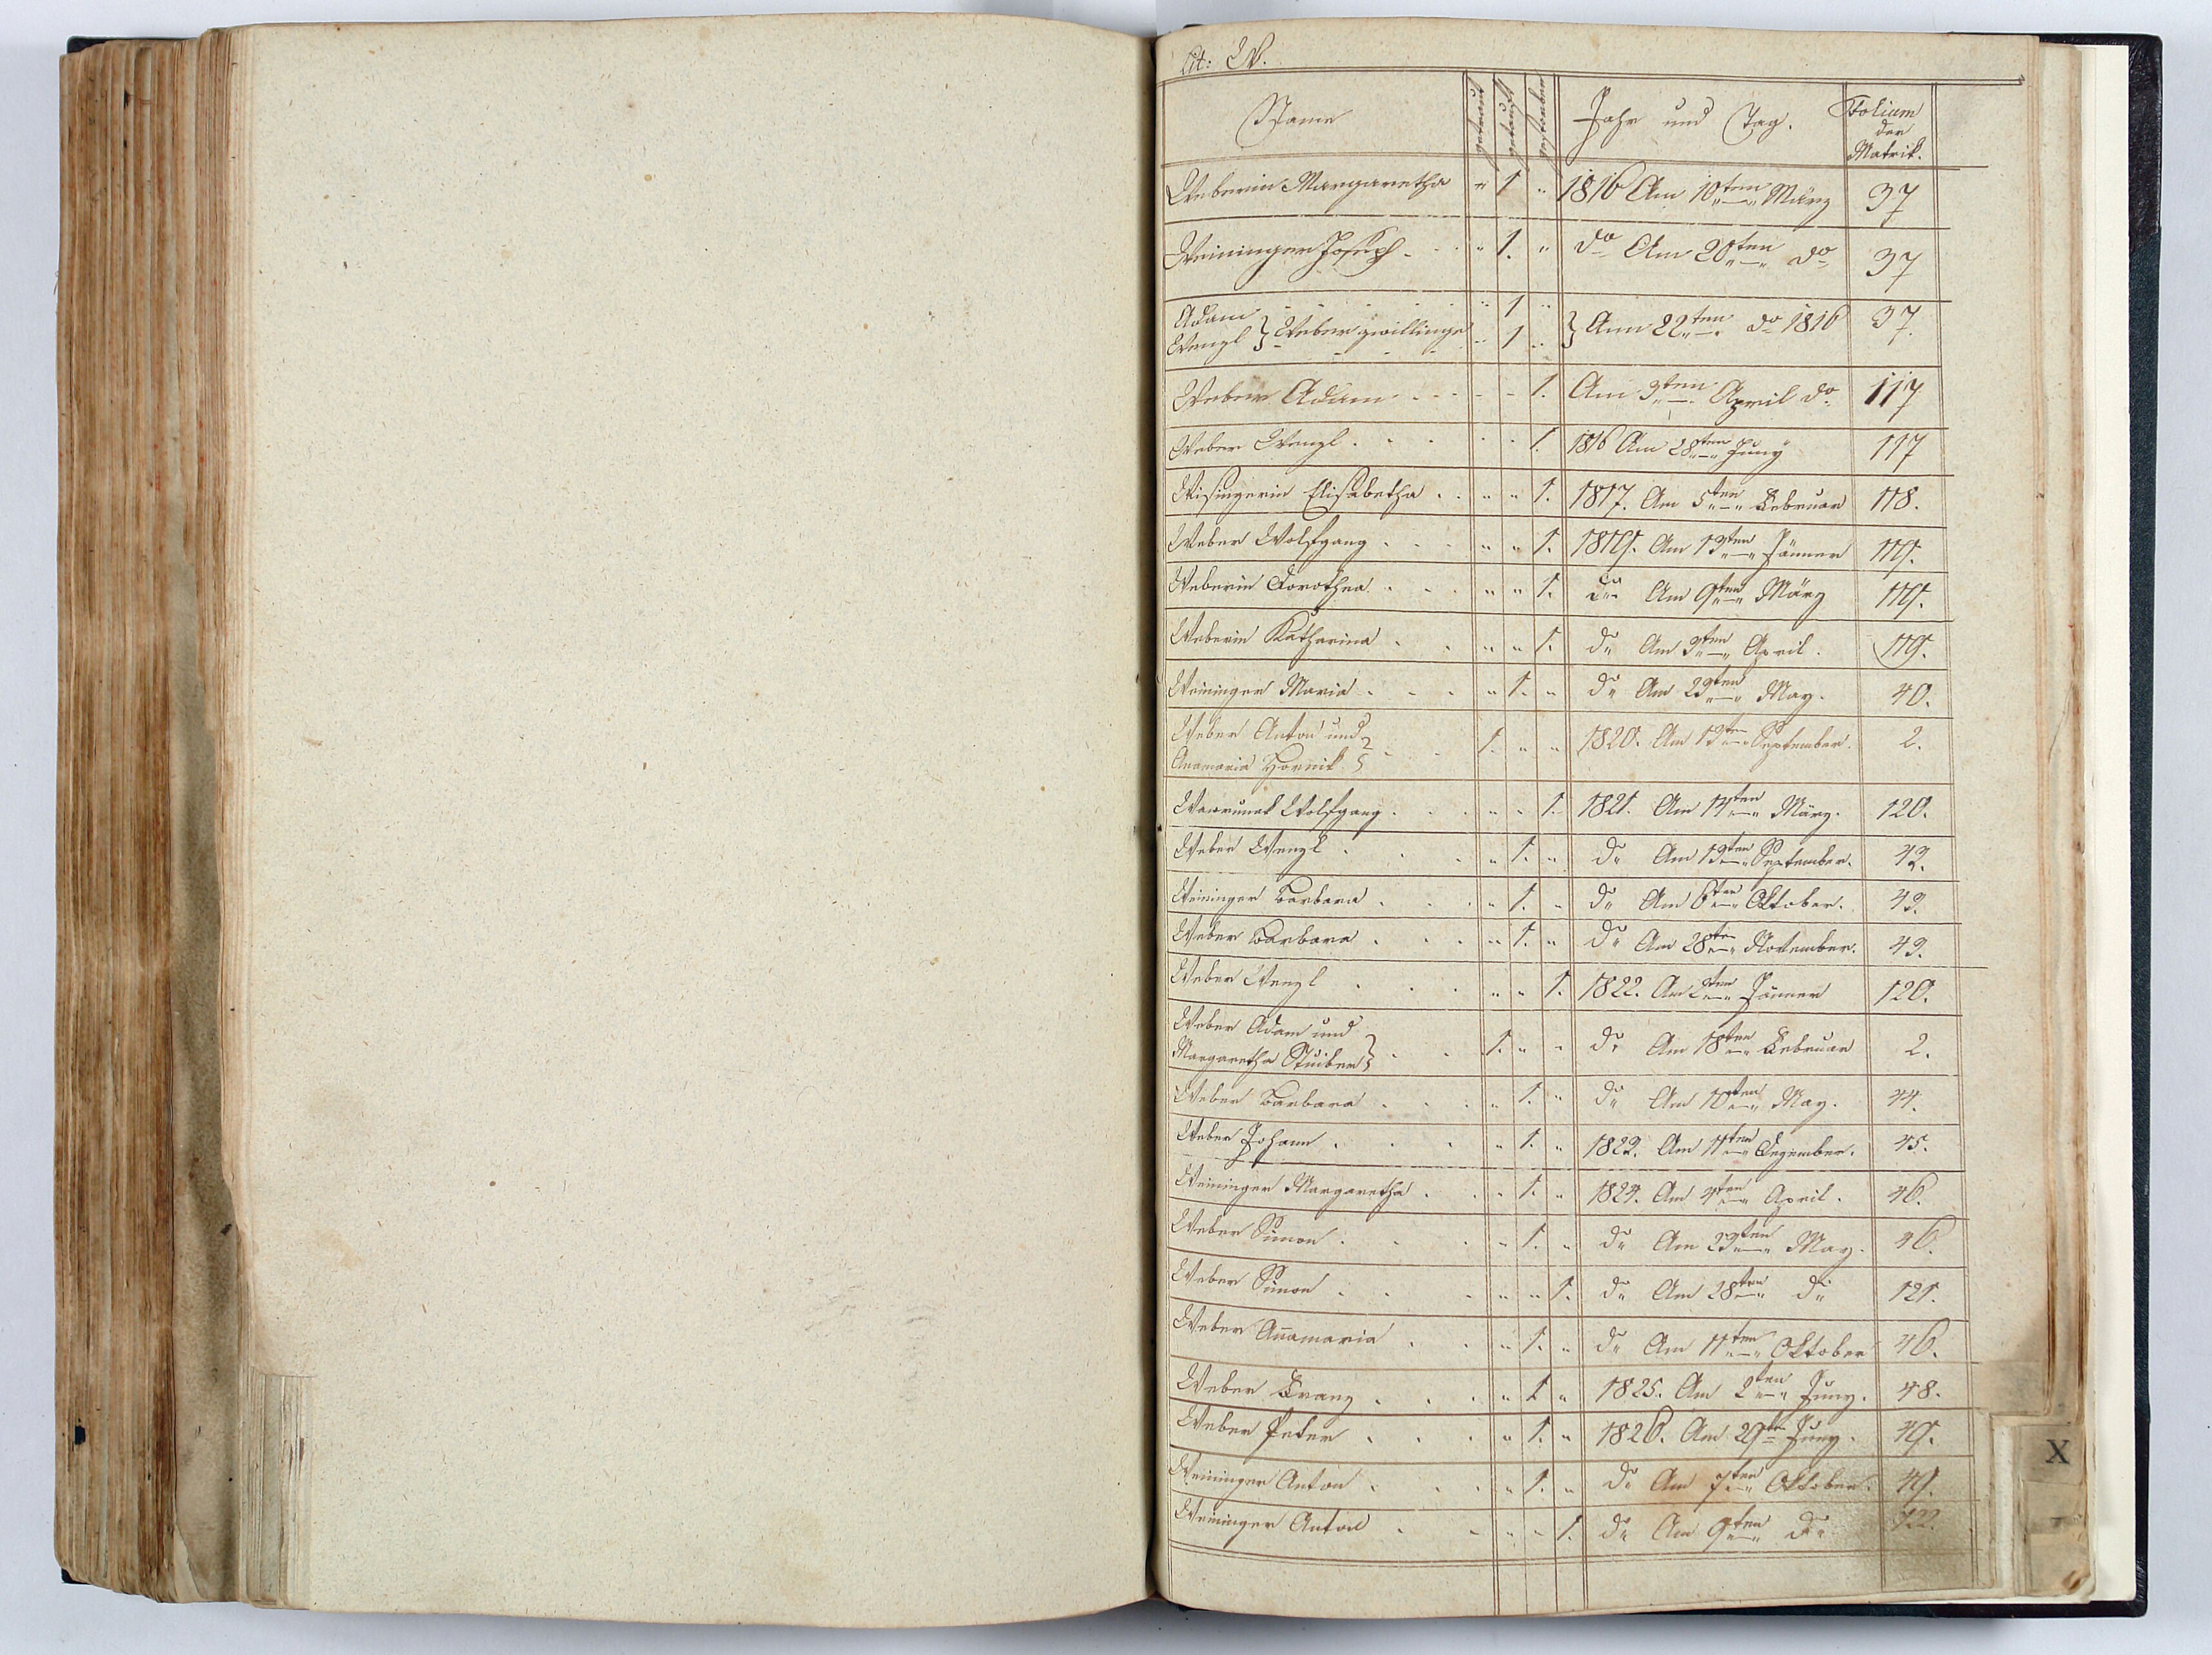 Lit: W.
Name getraut getauft gestorben Jahr und Tag. Folium
der
Matrik.
Weberin Margaretha " 1 " 1816 Am 10ten März 37
Weininger Joseph . . " 1. " do Am 20ten do 37
Adam
Wenzl } Weber zwillinge " 1 " " 1 " } Am 22ten do 1816 37.
Weber Adam . . . - - 1. Am 3ten April do. 117
Weber Wenzl . . . . . 1. 1816 Am 28ten Juny 117
Wisingerin Elisabetha . . " " 1. 1817. Am 5ten Februar 118.
Weber Wolfgang . . . " " 1. 1819. Am 13ten Jänner 119.
Weberin Dorothea . . . " " 1. do Am 9ten März 119.
Weberin Katharina . . " " 1. do Am 3ten April. 119.
Weininger Maria . . . " 1. " do Am 23ten May. 40.
Weber Anton und
Anamaria Hornik } . . 1. " " 1820. Am 13ten September. 2.
Wolfgang . . . " " 1. 1821. Am 14ten März. 120.
Weber Wenzl . . . " 1. " do Am 13ten September. 43.
Weininger Barbara . . . " 1. " do Am 6ten Oktober. 43.
Weber Barbara . . . " 1. " do Am 28ten November. 43.
Weber Wenzl . . . " " 1. 1822. Am 2ten Jänner 120.
Weber Adam und
Margaretha Stuiber } . . 1. " " do Am 18ten Februar 2.
Weber Barbara . . . " 1. " do Am 10ten May. 44.
Weber Johann . . . " 1. " 1823. Am 11ten Dezember. 45.
Weininger Margaretha . . " 1. " 1824. Am 4ten April. 46.
Weber Simon . . . " 1. " do Am 23ten May. 46.
Weber Simon . . . " " 1. do Am 28ten do 121.
Weber Anamaria . . " 1. " do Am 11ten Oktober 46.
Weber Franz . . . " 1 " 1825. Am 2ten Juny. 48.
Weber Peter . . . " 1. " 1826. Am 29ten Juny. 49.
Weininger Anton . . . " 1. " do Am 7ten Oktober. 49.
Weininger Anton . . " " 1. do Am 9ten do 122.
X